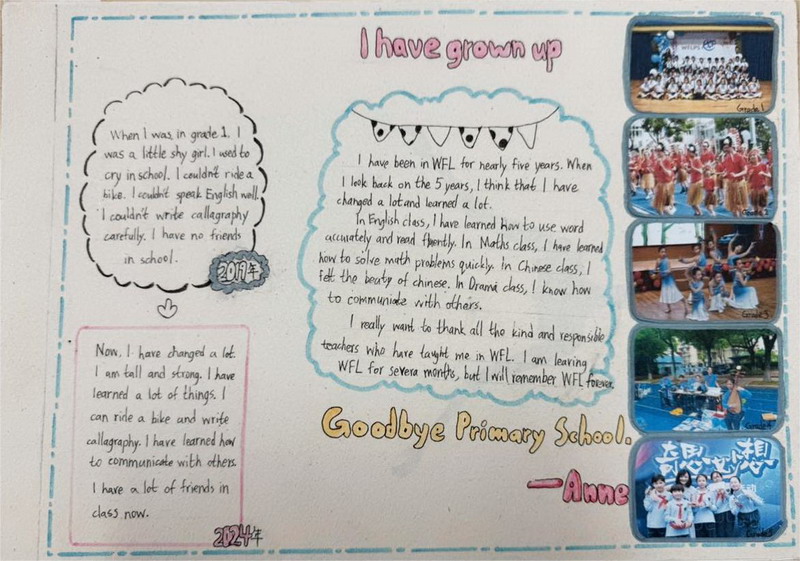 I have grown up
When I was in grade 1. I
was a little shy girl. I used to
cry in school. I couldn't ride a
bike. I couldn't speak English well.
I couldn't write callagraphy
carefully. I have no friends
in school.
2019年
Now, I have changed a lot.
I am tall and strong. I have
learned a lot of things. I
can ride a bike and write
callagraphy. I have learned how
to communicate with others.
I have a lot of friends in
class now.
2024年
I have been in WFL for nearly five years. When
I look back on the 5 years, I think that I have
changed a lot and learned a lot.
In English class, I have learned how to use word
accurately and read fluently. In Maths class, I have learned
how to solve math problems quickly. In Chinese class, I
felt the beauty of chinese. In Drama class, I know how
to communiate with others.
I really want to thank all the kind and responsible
teachers who have taught me in WFL. I am leaving
WFL for severa months, but I will remember WFL forever.
Goodbye Primary School.
—Anne
WFLPS
Grade 1
Grade 2
Grade 3
Grade 4
奇思妙想
Grade 5